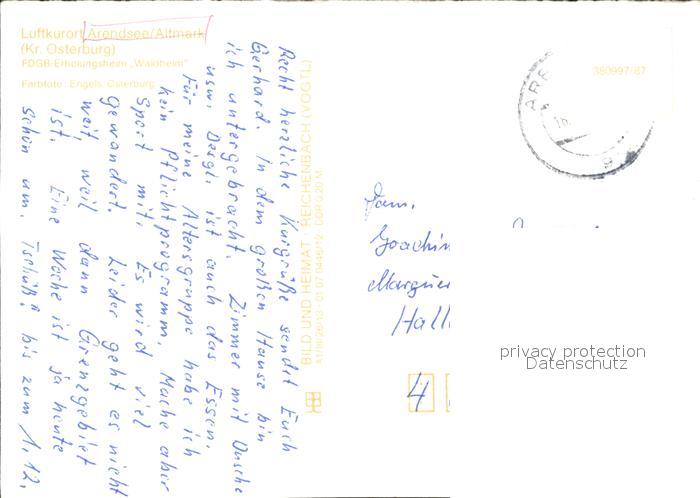 Luftkurort Arendsee/Altmark
(Kr. Osterburg)
FDGB-Erholungsheim „Waldheim"
Farbfoto: Engels, Osterburg
Recht herzliche Kurgrüße sendet Euch
Gerhard. In dem großen Hause bin
ich untergebracht. Zimmer mit Dusche
usw. Desgl. ist auch das Essen.
Für meine Altersgruppe habe ich
kein Pflichtprogramm. Mache aber
Sport mit. Es wird viel
gewandert. Leider geht es nicht
weit, weil dann Grenzgebiet
ist. Eine Woche ist ja heute
schon um. Tschüß! bis zum 1.12.
BILD UND HEIMAT · REICHENBACH (VOGTL)
DDR 0,20 M
380997/87
ARE
Fam.
Joachim
Hall
4
privacy protection
Datenschutz